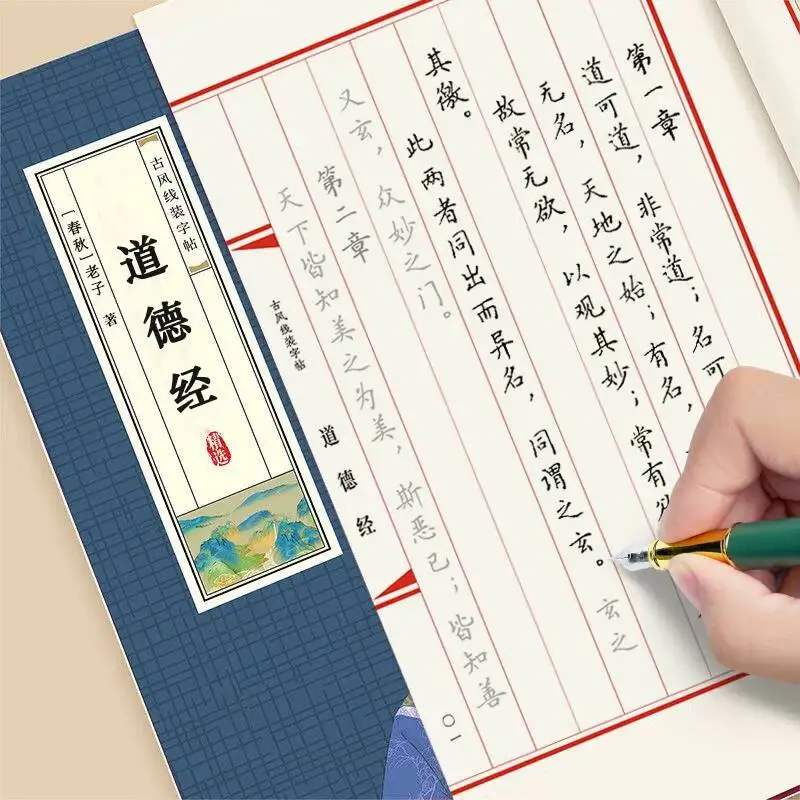 第一章
道可道，非常道；名可
无名，天地之始；有名，
故常无欲，以观其妙；常有
其徼。
此两者同出而异名，同谓之玄。玄之
又玄，众妙之门。
第二章
天下皆知美之为美，斯恶已；皆知善
古风线装字帖
道德经
〇一
古风线装字帖
道德经
精选
[春秋]老子 著